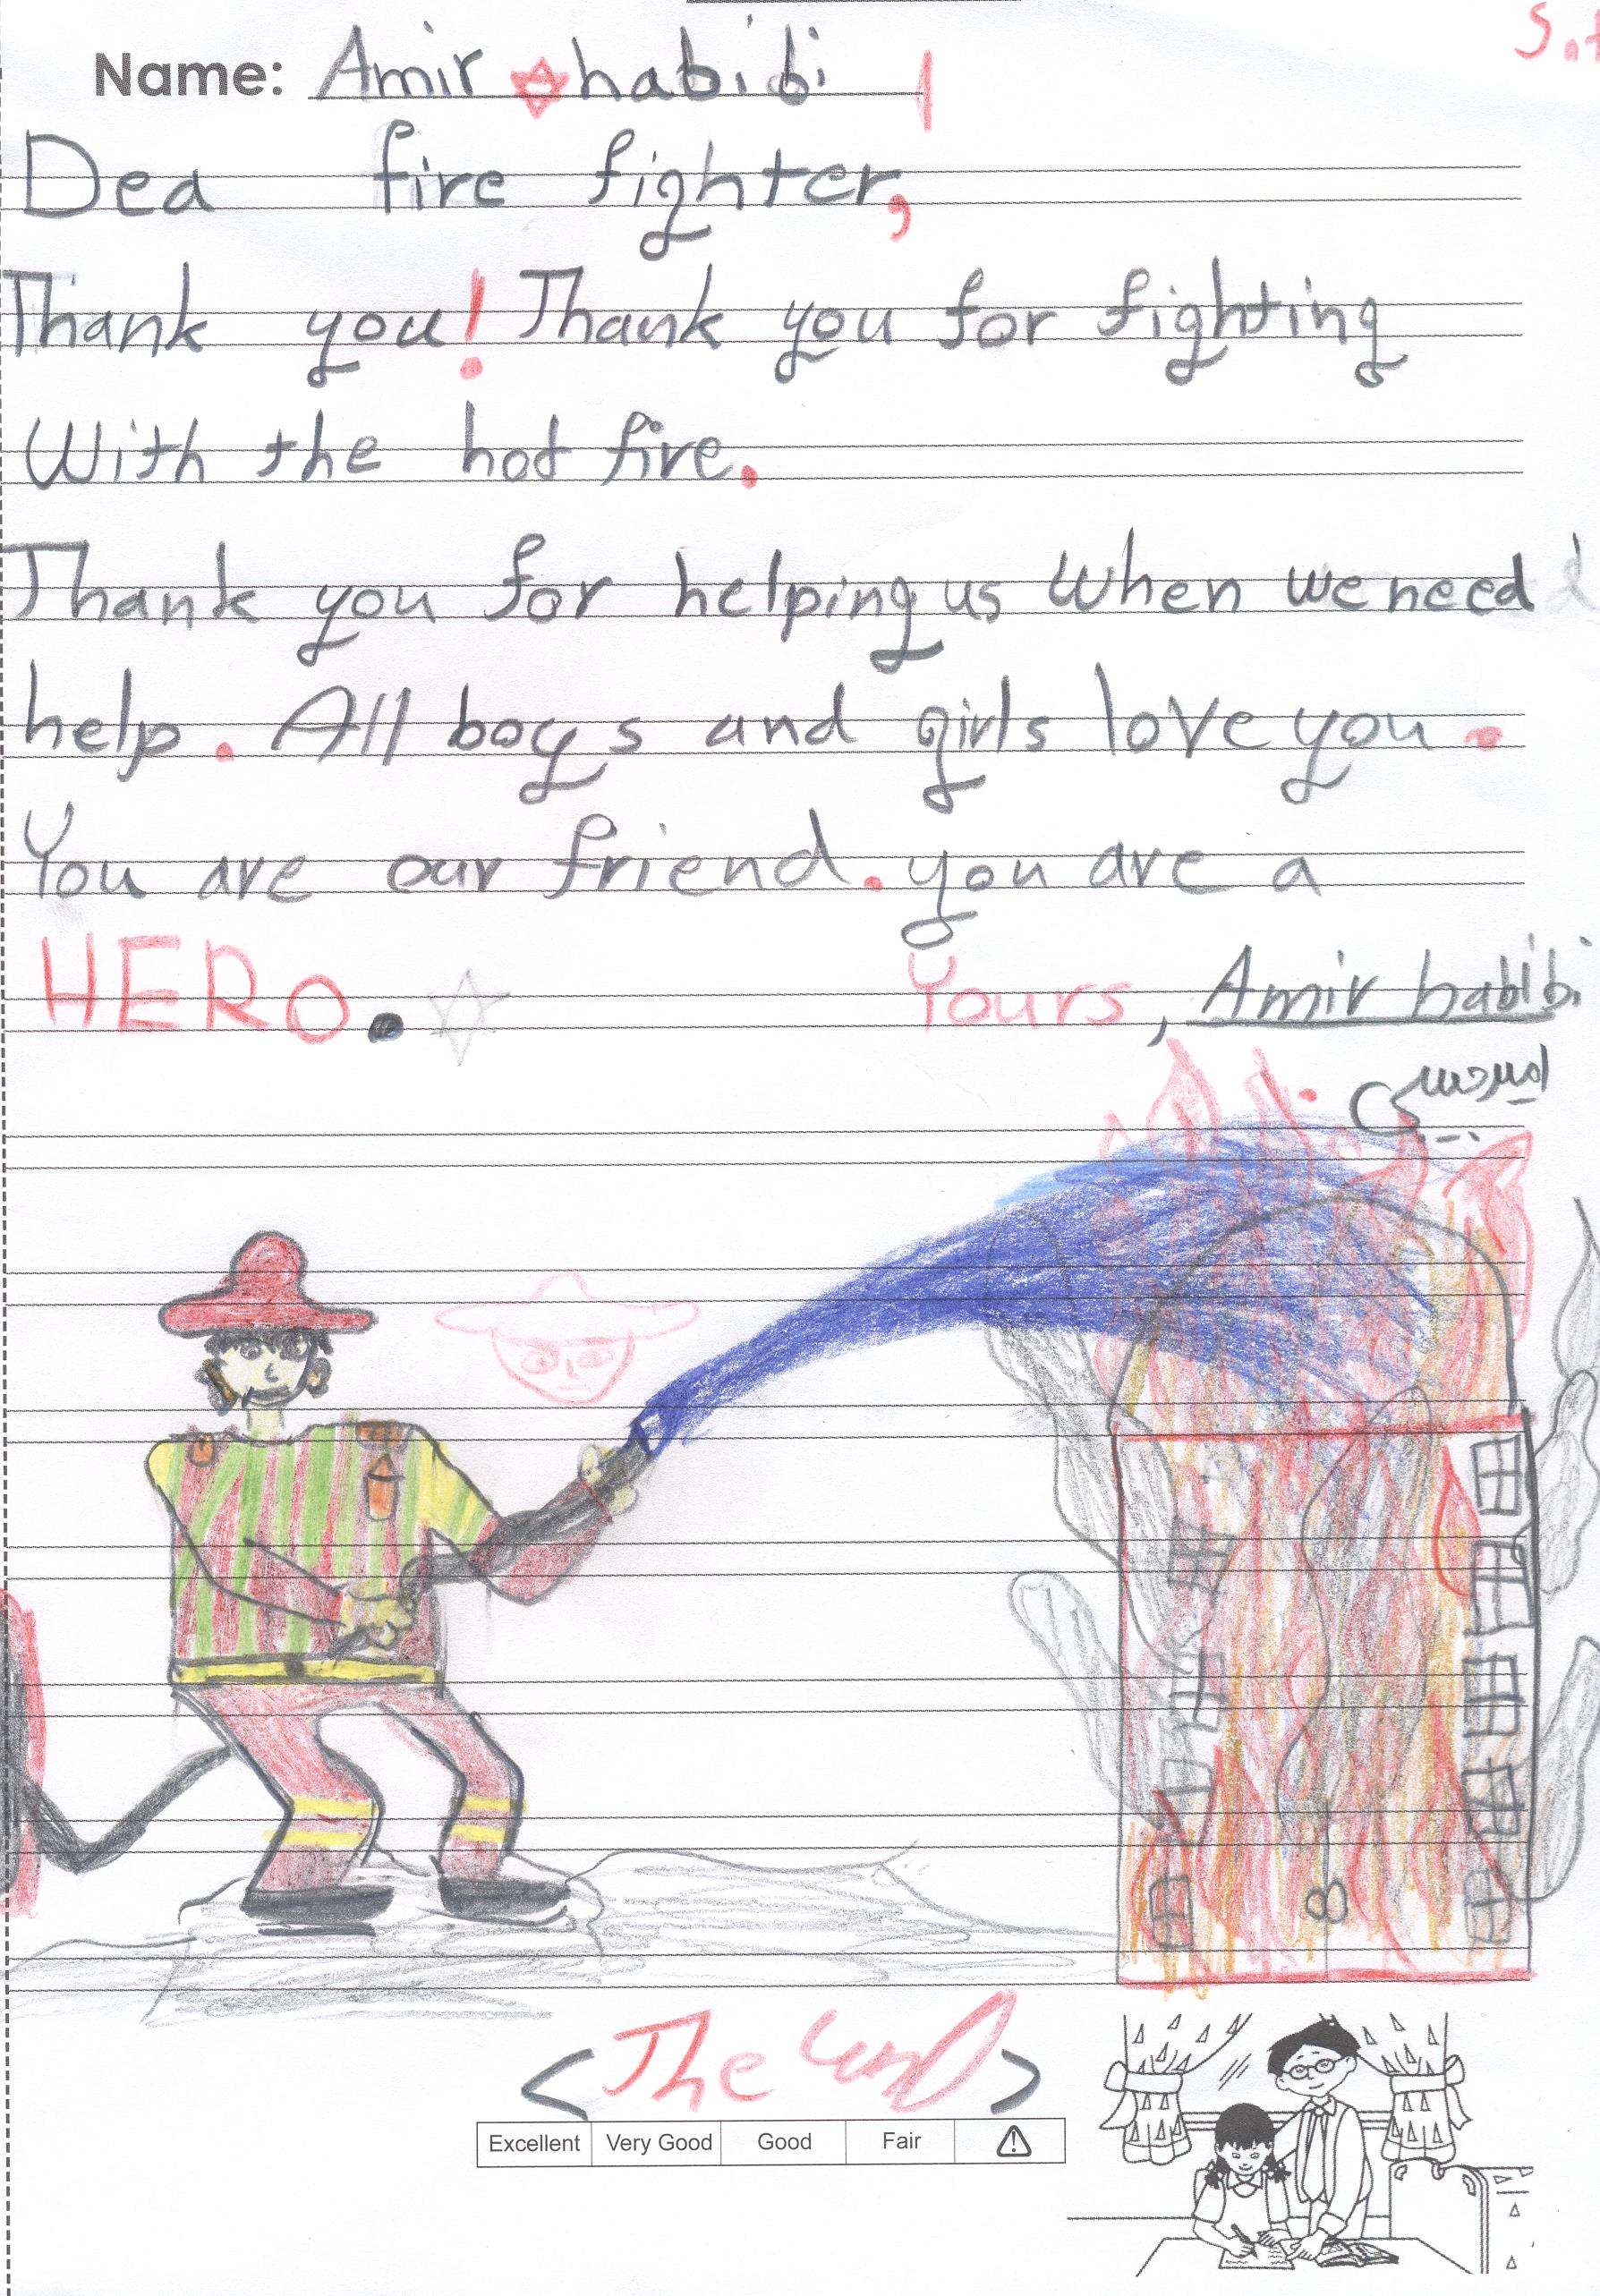 Name: Amir habibi
Dea fire fighter,
Thank you! Thank you for fighting
With the hot fire.
Thank you for helping us when we need
help. All boys and girls love you.
You are our friend. you are a
HERO.
Yours, Amir habibi
8
<The end>
Excellent Very Good Good Fair